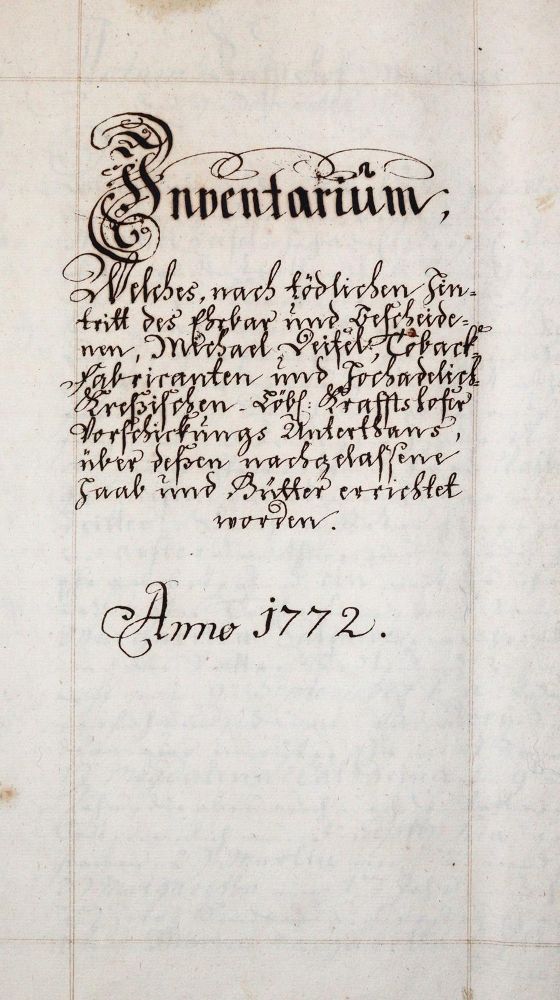 Inventarium,
Welches, nach tödlichen Hin-
tritt des Ehrbar und Bescheide-
nen, Michael Zeisel, Toback-
Fabricanten und Hochadelich-
Kreßischen - Löbl: Krafftshofer
Vorschickungs Unterthans,
über deßen nachgelassene
Haab und Gütter errichtet
worden.
Anno 1772.